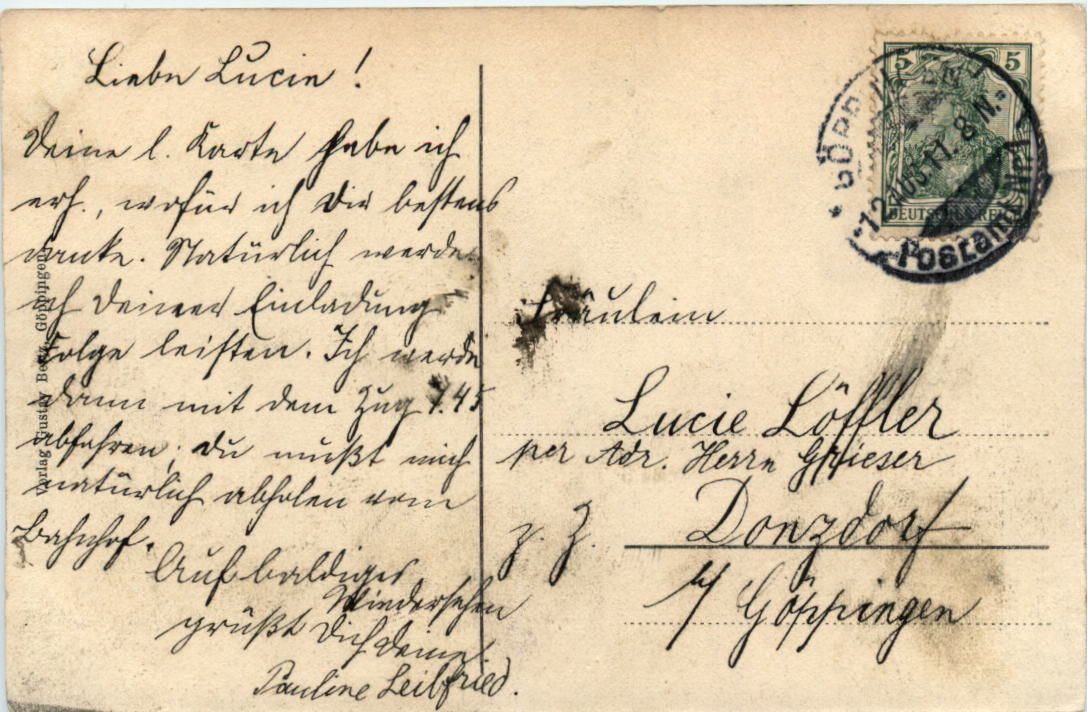 Liebe Lucie!
Deine l. Karte habe ich
erh., wofür ich Dir bestens
danke. Natürlich werde
ich Deiner Einladung
Folge leisten. Ich werde
dann mit dem Zug 7.45
abfahren; du mußt mich
natürlich abholen vom
Bahnhof.
Auf baldiges
Wiedersehen
grüßt Dich Deine
Pauline Leibfried.
Verlag Gustav Göppingen
5 5
DEUTSCHES REICH
GÖPPINGEN
12 AUG 11. 8 N.
Postamt
Fräulein
Lucie Löffler
per Adr. Herrn Grieser
z. Z. Donzdorf
b/ Göppingen